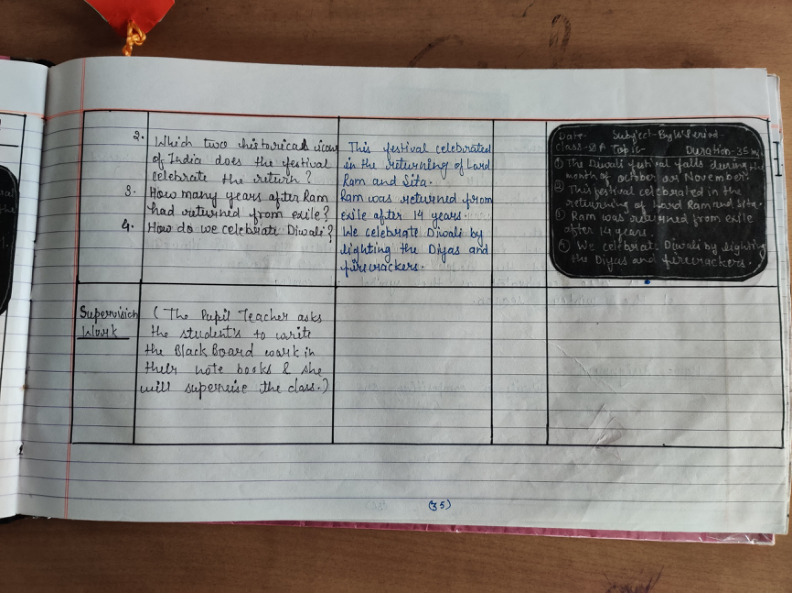 2.
Which two historical icons
of India does the festival
celebrate the return?
3. How many years after Ram
had returned from exile?
4. How do we celebrate Diwali?
This festival celebrated
in the returning of Lord
Ram and Sita.
Ram was returned from
exile after 14 years.
We celebrate Diwali by
lighting the Diyas and
firecrackers.
Date- Subject- Period-
Class- Topic- Duration-35 m
① The Diwali festival falls during the
month of october or November.
② This festival celebrated in the
returning of Lord Ram and Sita.
③ Ram was returned from exile
after 14 years.
④ We celebrate Diwali by lighting
the Diyas and firecrackers.
Supervision
Work
(The Pupil Teacher asks
the student's to write
the Black Board work in
their note books & she
will supervise the class.)
(35)